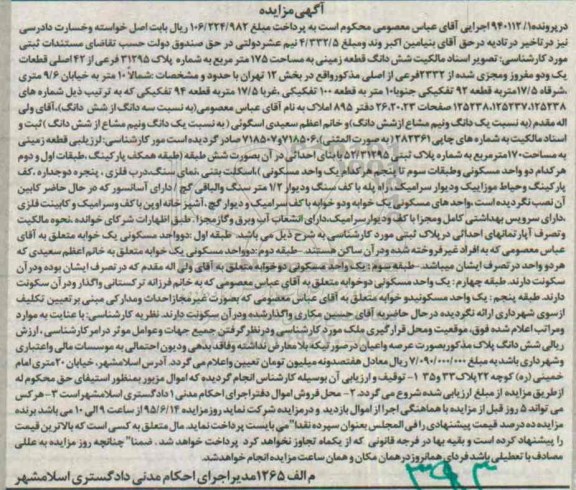 آگهی مزایده
درپرونده ۹۴۰۱۱۲/۱ اجرایی آقای عباس معصومی محکوم است به پرداخت مبلغ ۱۰۶/۳۲۴/۹۸۲ ریال بابت اصل خواسته وخسارت دادرسی
نیز در تاخیر در تادیه در حق آقای بنیامین اکبر وند ومبلغ ۴/۳۳۲/۵ نیم عشر دولتی در حق صندوق دولت حسب تقاضای مستندات ثبتی
مورد کارشناسی: تصویر اسناد مالکیت شش دانگ قطعه زمینی به مساحت ۱۷۵ متر مربع به شماره پلاک ۳۱۲۹۵ فرعی از ۴۲ اصلی قطعات
یک ودو مفروز ومجزی شده از ۲۳۳۲فرعی از اصلی مذکورواقع در بخش ۱۲ تهران با حدود و مشخصات :شمالا ۱۰ متر به خیابان ۹/۶ متری
،شرقاه ۱۷/۵متربه قطعه ۹۲ تفکیکی جنوبا۱۰ متر به قطعه ۱۰۰ تفکیکی ،غربا ۱۷/۵ متربه قطعه ۹۴ تفکیکی که به ترتیب ذیل شماره های
۱۲۵۲۳۸،۱۲۵۲۳۷،۱۲۵۲۳۸ صفحات ۲۶،۲۰،۲۳ دفتر ۸۹۵ املاک به نام آقای عباس معصومی(به نسبت سه دانگ از شش دانگ)،آقای ولی
اله مقدم (به نسبت یک دانگ ونیم مشاع ازشش دانگ)و خانم اعظم سعیدی اسگوئی ( به نسبت یک دانگ ونیم مشاع از شش دانگ ) ثبت و
اسناد مالکیت به شماره های چاپی ۱۸۲۳۶۱( صورت المثنی)،۷۱۸۵۰۶و۷۱۸۵۰۷ صادر گردیده است مور کارشناسی: ارزیابی قطعه زمینی
به مساحت۱۷۰مترمربع به شماره پلاک ثبتی ۵۲/۳۱۲۹۵ بابنای احداثی در آن بصورت شش طبقه (طبقه همکف پارکینگ ،طبقات اول و دوم
هر کدام دو واحد مسکونی وطبقات سوم تا پنجم هرکدام یک واحد مسکونی )،اسکلت بتنی ،نمای سنگ،درب فلزی ، پنجره دوجداره ،کف
پارکینگ وحیاط موزاییک ودیوار سرامیک،راه پله با کف سنگ ودیوار ۱/۲ متر سنگ والباقی گچ / دارای آسانسور که در حال حاضر کابین
آن نصب نگردیده است ،واحد های مسکونی یک خوابه ودو خوابه با کف سرامیک و دیوار گچ ،آشپز خانه اوپن با کف وسرامیک و کابینت فلزی
،دارای سرویس بهداشتی کامل ومجزا با کف ودیوارسرامیک،دارای انشعاب آب وبرق وگازمجزا. طبق اظهارات شرکای خوانده ،نحوه مالکیت
وتصرف آپارتمانهای احداثی در پلاک ثبتی مورد کارشناسی به شرح ذیل می باشد. طبقه اول :دوواحد مسکونی یک خوابه متعلق به آقای
عباس معصومی که به افراد غیرفروخته شده ودر آن ساکن هستند -طبقه دوم:دوواحد مسکونی یک خوابه متعلق به خانم اعظم سعیدی که
هر دو واحد در تصرف ایشان میباشد -طبقه سوم : یک واحد مسکونی دوخوابه متعلق به آقای ولی اله مقدم که در تصرف ایشان بوده ودر آن
سکونت دارند. طبقه چهارم : یک واحد مسکونی دوخوابه متعلق به آقای عباس معصومی که به خانم فرزانه ترکستانی واگذار ودر آن سکونت
دارند. طبقه پنجم : یک واحد مسکونیدو خوابه متعلق به آقای عباس معصومی که بصورت غیرمجازاحداث ومدارکی مبنی بر تعیین تکلیف
ازسوی شهرداری ارائه نگردیده در حال حاضربه آقای حسین مکاری واگذارشده ودر آن سکونت دارند. نظریه کارشناسی: با عنایت به موارد
ومراتب اعلام شده فوق، موقعیت ومحل قرارگیری ملک مورد کارشناسی ودر نظر گرفتن جمیع جهات وعوامل موثر در امر کارشناسی ، ارزش
ریالی شش دانگ پلاک مذکوربصورت عرصه واعیان در صورتیکه بلا معارض نداشته وفاقد بدهی ودیون احتمالی به موسسات مالی واعتباری
وشهرداری باشد به مبلغ ۷/۰۹۰/۰۰۰/۰۰۰ ریال معادل هفتصدونه میلیون تومان تعیین واعلام می گردد. آدرس اسلامشهر، خیابان ۲۰متری امام
خمینی (ره) کوچه ۲۲ پلاک ۳۳ و۳۵ ۱- توقیف و ارزیابی آن بوسیله کارشناس انجام گردیده که اموال مزبور بمنظور استیفای حق محکوم له
از طریق مزایده از مبلغ ارزیابی شده شروع می گردد. ۲- محل فروش اموال دفتراجرای احکام مدنی ۱دادگستری اسلامشهراست ۳- هرکس
می تواند ۵ روز قبل از مزایده با هماهنگی اجرا از اموال بازدید و درمزایده شرکت نماید روزمزایده ۹۵/۶/۱۴ از ساعت ۹ الی ۱۰ می باشد برنده
مزایده ده درصد قیمت پیشنهادی را فی المجلس بعنوان سپرده نقدا"می بایست پرداخت نماید. مال متعلق به کسی است که بالاترین قیمت
را پیشنهاد کرده است و بقیه بها در فرجه قانونی که از یکماه تجاوز نخواهد کرد پرداخت خواهد شد . ضمنا" چنانچه روز مزایده به عللی
مصادف با تعطیلی باشد فردای همانروز در همان مکان و همان ساعت مزایده انجام خواهدشد.
م الف ۱۲۶۵ مدیر اجرای احکام مدنی دادگستری اسلامشهر